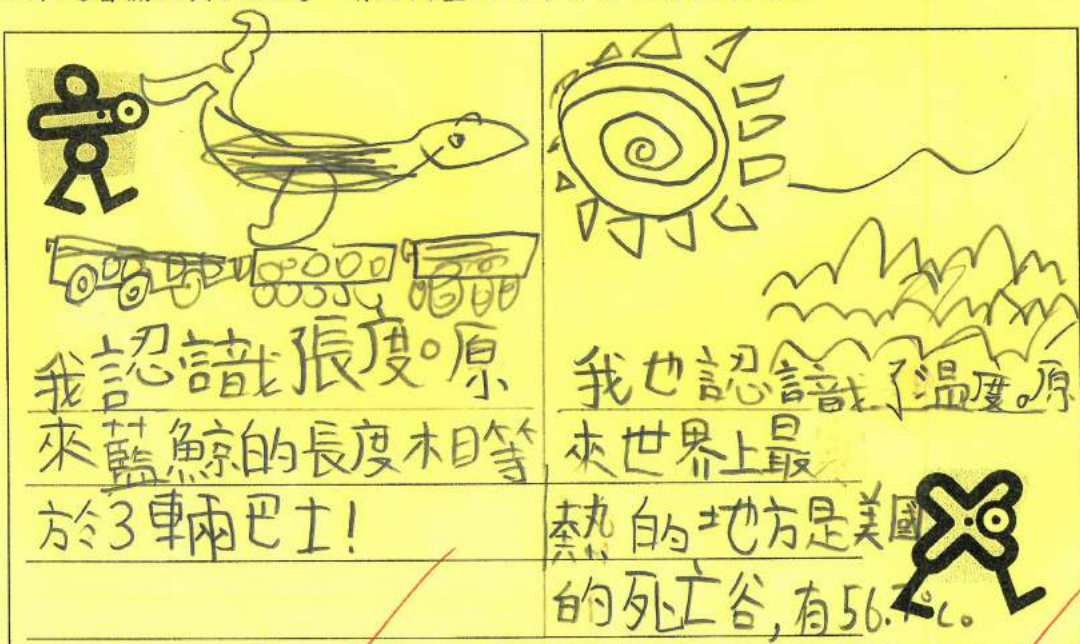 我認識張度。原
來藍鯨的長度相等
於3輛巴士!
我也認識了溫度。原
來世界上最
熱的地方是美國
的死亡谷,有56.7℃。